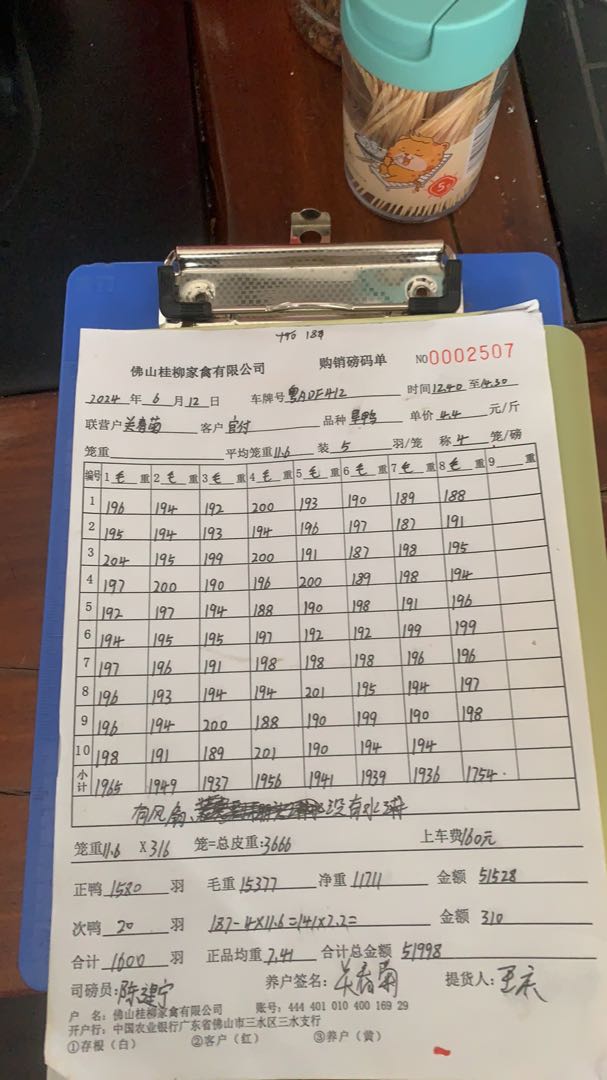 190 18只
佛山桂柳家禽有限公司 购销磅码单 NO0002507
2024 年 6 月 12 日 车牌号粤ADF412 时间12.40 至14.30
联营户关春菊 客户 品种 单价 4.4 元/斤
笼重 平均笼重11.6 装 5 羽/笼 称 4 笼/磅
编号 1 毛 重 2 毛 重 3 毛 重 4 毛 重 5 毛 重 6 毛 重 7 毛 重 8 毛 重 9 重
1 196 194 192 200 193 190 189 188
2 195 194 193 194 196 197 187 191
3 204 195 199 200 191 187 198 195
4 197 200 190 196 200 189 198 194
5 192 197 194 188 190 198 191 196
6 194 195 195 197 192 192 199 199
7 197 196 191 198 198 198 196 196
8 196 193 194 194 201 195 194 197
9 196 194 200 188 190 199 190 198
10 198 191 189 201 190 194 194
小计 1965 1949 1937 1956 1941 1939 1936 1754.
有风扇 没有水
笼重11.6 X 316 笼=总皮重:3666 上车费160元
正鸭 1580 羽 毛重 15377 净重 11711 金额 51528
次鸭 20 羽 187-4X11.6=141X2.2= 金额 310
合计 1600 羽 正品均重 7.41 合计总金额 51998
司磅员:陈建宁 养户签名:关春菊 提货人:
户 名:佛山桂柳家禽有限公司 账号:444 401 010 400 169 29
开户行:中国农业银行广东省佛山市三水区三水支行
①存根(白) ②客户(红) ③养户(黄)